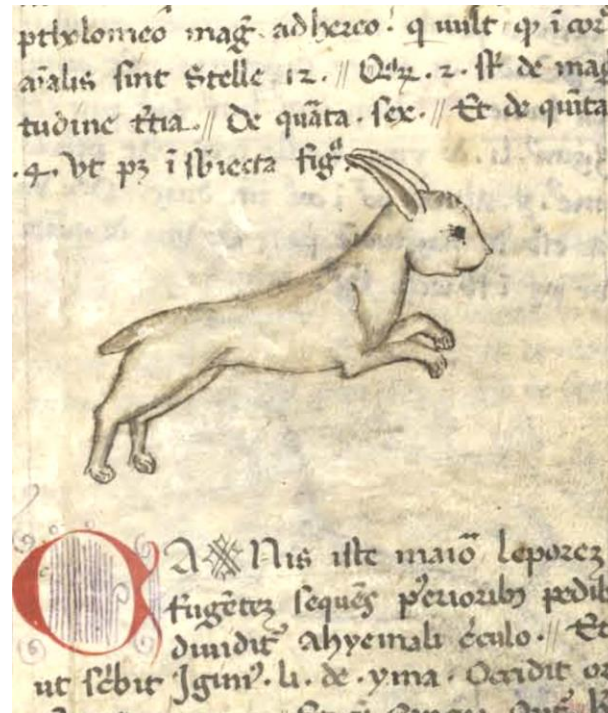 ptħxlomeō mag̃ adhereo · q uult ꝙ ī coꝛ̃
aīalis sint Stelle 12 · // Qꝝ · 2 · st̃ de mag
tudine t̃tia · // De quãta · sex · // Et de quīta
· 4 · Vt pꝫ ī sb̄iecta fig
CANis iste maioꝛ̃ leporeꝫ
fugẽteꝫ sequẽs pedib
diuidit̃ ahyemali c̃culo · // Et
ut sc̃bit Jgini⁹ · li · de · yma · Occidit